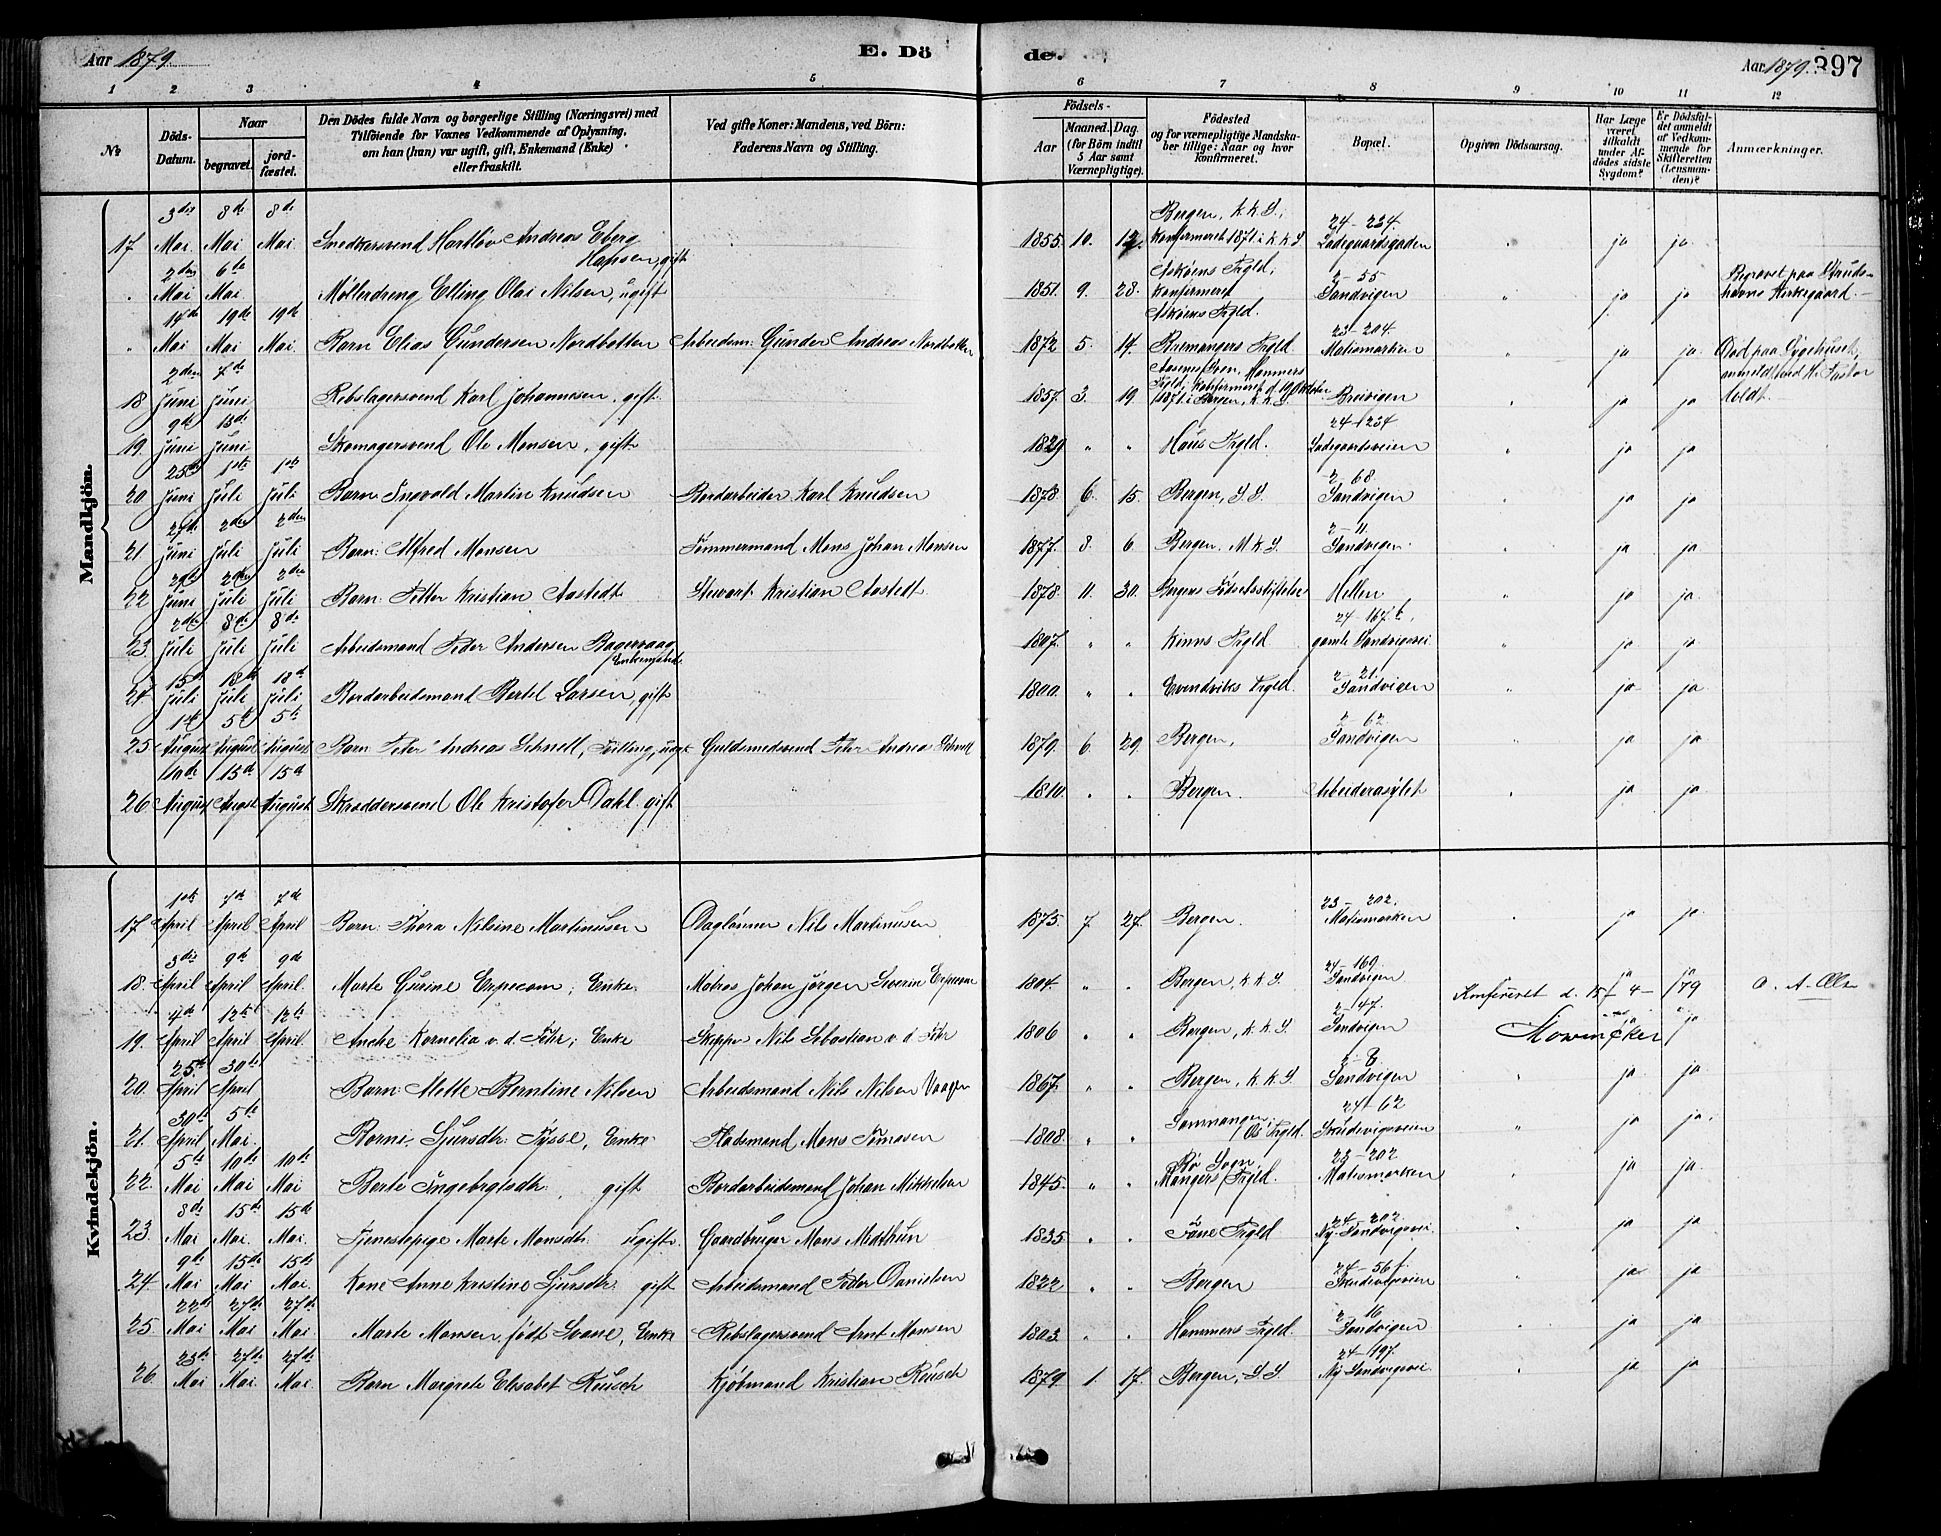 Aar 1879.
E. Dö
de.
Aar 1879.
397
1 2 3 4 5 6 7 8 9 10 11 12
No
Döds-Datum.
Naar
begravet.
jord-fæstet.
Den Dödes fulde Navn og borgerlige Stilling (Næringsvei) med
Tilföiende for Voxnes Vedkommende af Oplysning,
om han (hun) var ugift, gift, Enkemand (Enke)
eller fraskilt.
Ved gifte Koner: Mandens, ved Börn:
Faderens Navn og Stilling.
Födsels-
Aar
Maaned. Dag.
(for Börn indtil
5 Aar samt
Værnepligtige).
Födested
og for værnepligtige Mandska-
ber tillige: Naar og hvor
konfirmeret.
Bopæl.
Opgiven Dödsaarsag.
Har Læge
været
tilkaldt
under Af-
dödes sidste
Sygdom?
Er Dödsfal-
det anmeldt
af Vedkom-
mende for
Skifteretten
(Lensman-
den)?
Anmærkninger.
Mandkjön.
17 3die Mai 8de Mai 8de Mai Snedkersvend Andreas Eberg Hansen, gift 1855. 10. 12. Bergen, K. K. S.; Konfirmeret 1871 i K. K. S 24-234. Ladegaardsgaden " ja ja
" 2den Mai 6te Mai Møllerdreng Elling Olai Nilsen, ugift 1851. 9. 28. Askøens Prgld; Konfirmeret Askøens Prgld. 2-55 Sandvigen " ja ja Begravet paa Struds-havns Kirkegaard.
" 14de Mai 19de Mai 19de Mai. Barn Elias Gundersen Nordbotten Arbeidsm: Gunder Andreas Nordbotten 1872 5. 14. Prgld. 23-204. Matismarken " ja ja Død paa Sygehuset, anmeldt ved H. Pastor
18 2den Juni 7de Juni Rebslagersvend Karl Johannesen, gift. 1857. 3. 19. Hammers Prgld; Konfirmeret d. 1871 i Bergen, K. K. S Breivigen " ja ja
19. 9de Juni 13de Juni Skomagersvend Ole Monsen, gift 1829 " " Haus Prgld. 24-234 Ladegaardsveien " ja ja
20 25de Juni 1ste Juli 1ste Juli Barn Ingvald Martin Knudsen Bordarbeider Karl Knudsen 1878. 6. 15. Bergen, S. S. 2 68. Sandvigen " ja ja
21. 27de Juni 2den Juli 2den Juli Barn: Alfred Monsen Tømmermand Mons Johan Monsen 1877. 8. 6. Bergen. M. K. S. 2-11. Sandvigen. " ja ja
22 29de Juni 2den Juli 2den Juli Barn: Petter Kristian Aastedt Stewart Kristian Aastedt 1878. 11. 30. Bergens Fødselsstiftelse Hellen " ja ja.
23. 2den Juli 8de Juli 8de Juli Arbeidsmand Peder Andersen Enkemand. 1807. " " Kinns Prgld 24 167 b, gamle Sandvigsvei " ja ja
24. 15de Juli 18de Juli 18de Juli Bordarbeidsmand Bertel Larsen, gift 1800. " " Evendviks Prgld. 2-21. Sandvigen ja ja
25. 1ste August 5te August 5te August Barn Peter Andreas Schnell, Guldsmedsvend Peter Andreas Schnell 1879. 6. 29. Bergen, 2 62. Sandvigen " ja ja.
26 10de August 15de August 15de August Skræddersvend Ole Kristofer Dahl. gift 1810. " " Bergen. Arbeiderasylet " ja ja
Kvindekjön.
17. 1ste April 7de April 7de April Barn: Thora Nilsine Martinusen Dagløner Nils Martinusen 1875. 7. 27. Bergen. 23-202. Matismarken " ja ja.
18. 3die April 9de April 9de April. Marte Gurine Erpecom; Enke. Matros Johan Jørgen Severin Erpecom 1804. " " Bergen, K. K. S 24-169. Sandvigen ja ja O. A. Olsen
Konfereret d. 15/4-1879
19. 4de April 12te April 12te April. Anche Kornelia v. d. Fehr; Enke Skipper Nils Sebastian v. d. Fehr 1806 " " Bergen, K. K. S. 2-47. Sandvigen Mowinckel ja ja
20. 25de April 30te April Barn: Mette Berntine Nilsen Arbeidsmand Nils Nilsen Vaagen 1867. " " Bergen, K. K. S. 2-8. Sandvigen " ja ja
21. 30te April 5te Mai. Borni Sjursdtr: Tysse, Enke Pladsmand Mons Tomasen 1808. " " Sammanger, Os Prgld. 24-62 Skudevigsveien " ja ja.
22. 5te Mai 10de Mai 10de Mai Berte Ingebrgtsdtr, gift Bordarbeidsmand Johan Mikkelsen 1845. " " Bø Sogn, Mangers Prgld. 23-202 Matismarken " ja ja.
23. 8de Mai 15de Mai. 15de Mai. Tjenestepige Marte Monsdtr: Ugift. Gaardbruger Mons Midthun 1835. " " Fane Prgld 24-202. Ny-Sandvigsvei " ja ja
24. 9de Mai 15de Mai 15de Mai. Kone Anne Kristine Sjursdtr: gift Arbeidsmand Peder Danielsen 1822 " " Bergen 24-56 f. Skudevigsveien " ja ja
25. 22de Mai 27de Mai 27de Mai. Marte Monsen, født Svane, Enke Rebslagersvend Arnt Monsen 1803. " " Hammers Prgld. 2 16 Sandvigen " ja ja
26. 23de Mai 27de Mai. 27de Mai. Barn Margrete Elisabet Reusch Kjøbmand Kristian Reusch 1879 1. 17. Bergen, S. S 24-197. Ny Sandvigsvei. " ja ja